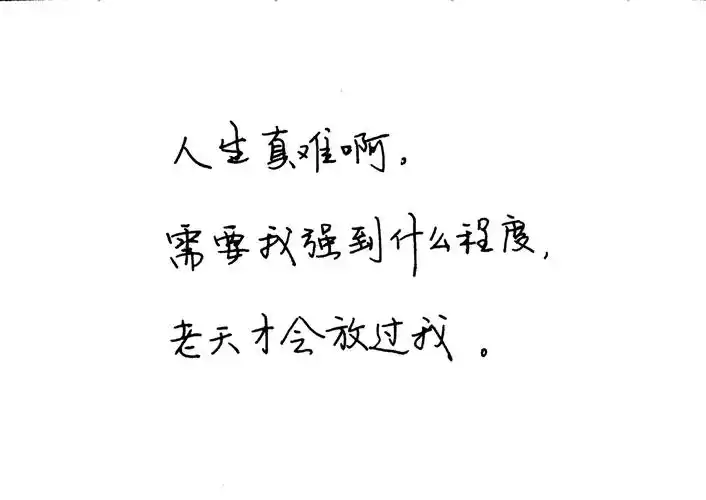 人生真难啊。
需要我强到什么程度,
老天才会放过我。